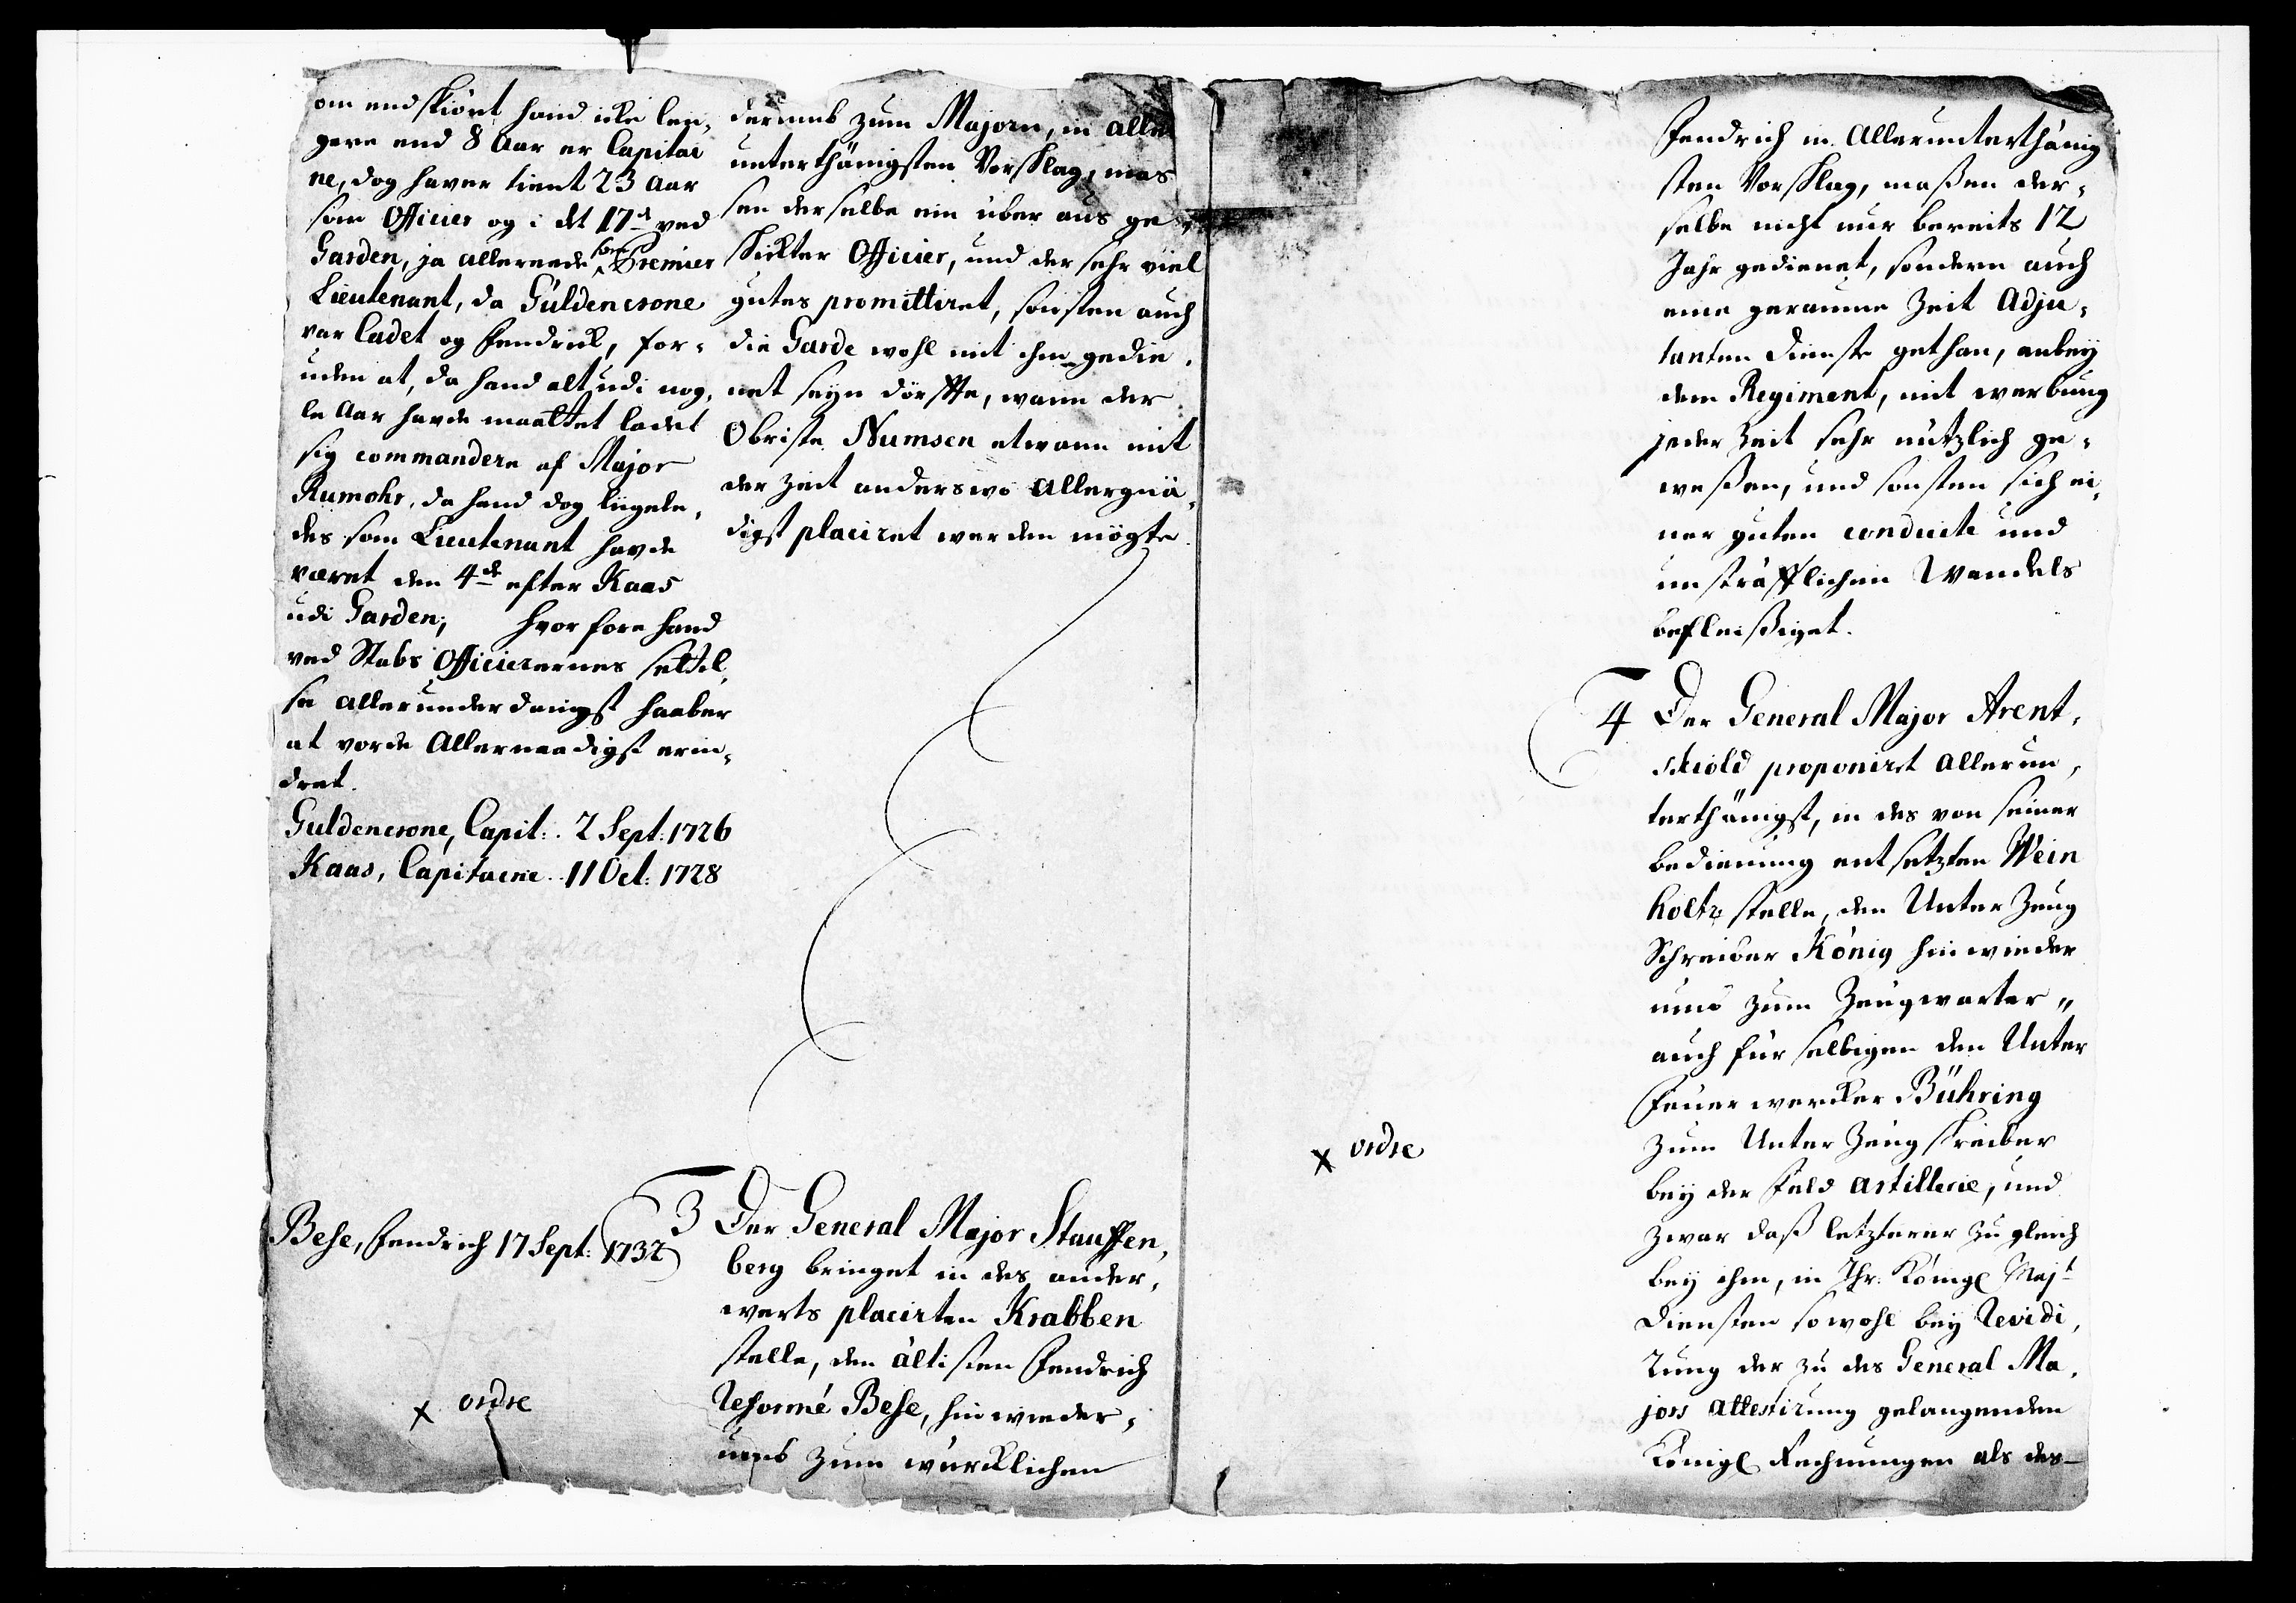 om endskiönt hand icke len,
gere end 8 Aar er Capitai
ne, dog haver tient 23 Aar
som Officier og i det 17d ved
Garden, ja allereede som Premier
Lieutenant, da Güldencrone
var Cadet og Fendrick, for,
uden at, da hand alt udi nog,
le Aar havde maattet ladet
sig commandere af Major
Rumohr, da hand dog liigele,
des som Lieutenant havde
været den 4de efter Kaas
udi Garden; hvorfore hand
ved Stabs Officierernes settel,
se allerunderdanigst haaber
at vorde Allernaadigst erin,
dret.
Guldencrone, Capit: 2 Sept: 1726
Kaas, Capitaine 11 Oct: 1728
Bese, Fendrich 17 Sept: 1732
x ordre
derumb zum Majorn, in aller
unterthänigsten Vorschlag, mas
sen derselbe ein über aus ge,
schickter Officier, und der sehr viel
gutes promittiret, sonsten auch
die Garde wohl mit ihm gedie,
net seyn dörffte, wann der
Obriste Numsen etwann mit
der Zeit anderswo Allergnä,
digst placiret werden mögte.
3 Der General Major Stauffen,
berg bringet in des ander,
werts placirten Krabben
stelle, den ältisten Fendrich
Reformé Bese, hinwieder,
umb zum würcklichen
Fendrich in Allerunterthänig
sten Vorschlag, maßen der,
selbe nicht nur bereits 12
Jahr gedienet, sondern auch
eine geraume Zeit Adju,
tanten Dienste gethan, anbey
dem Regiment, mit werbung
jeder Zeit sehr nützlich ge,
weßen, und sonsten sich ei,
ner guten conduite und
unsträfflichen Wandels
befleißiget.
4 Der General Major Arent,
skiold proponirt allerun,
terthänigst, in des von seiner
bedienung entsetzten Wein
holtz stelle, den Unter Zeug
Schreiber König hinwieder
umb zum Zeugwarter,,
auch für selbigen den Unter
Feuerwercker Bühring
zum Unter Zeugschreiber
bey der Feld Artillerie, und
zwar daß letzterer zugleich
bey ihm, in Ihr. Königl Majt
Diensten sowohl bey Revidi,
rung der zu des General Ma,
jors Attestirung gelangenden
Königl Rechnungen als des
x ordre